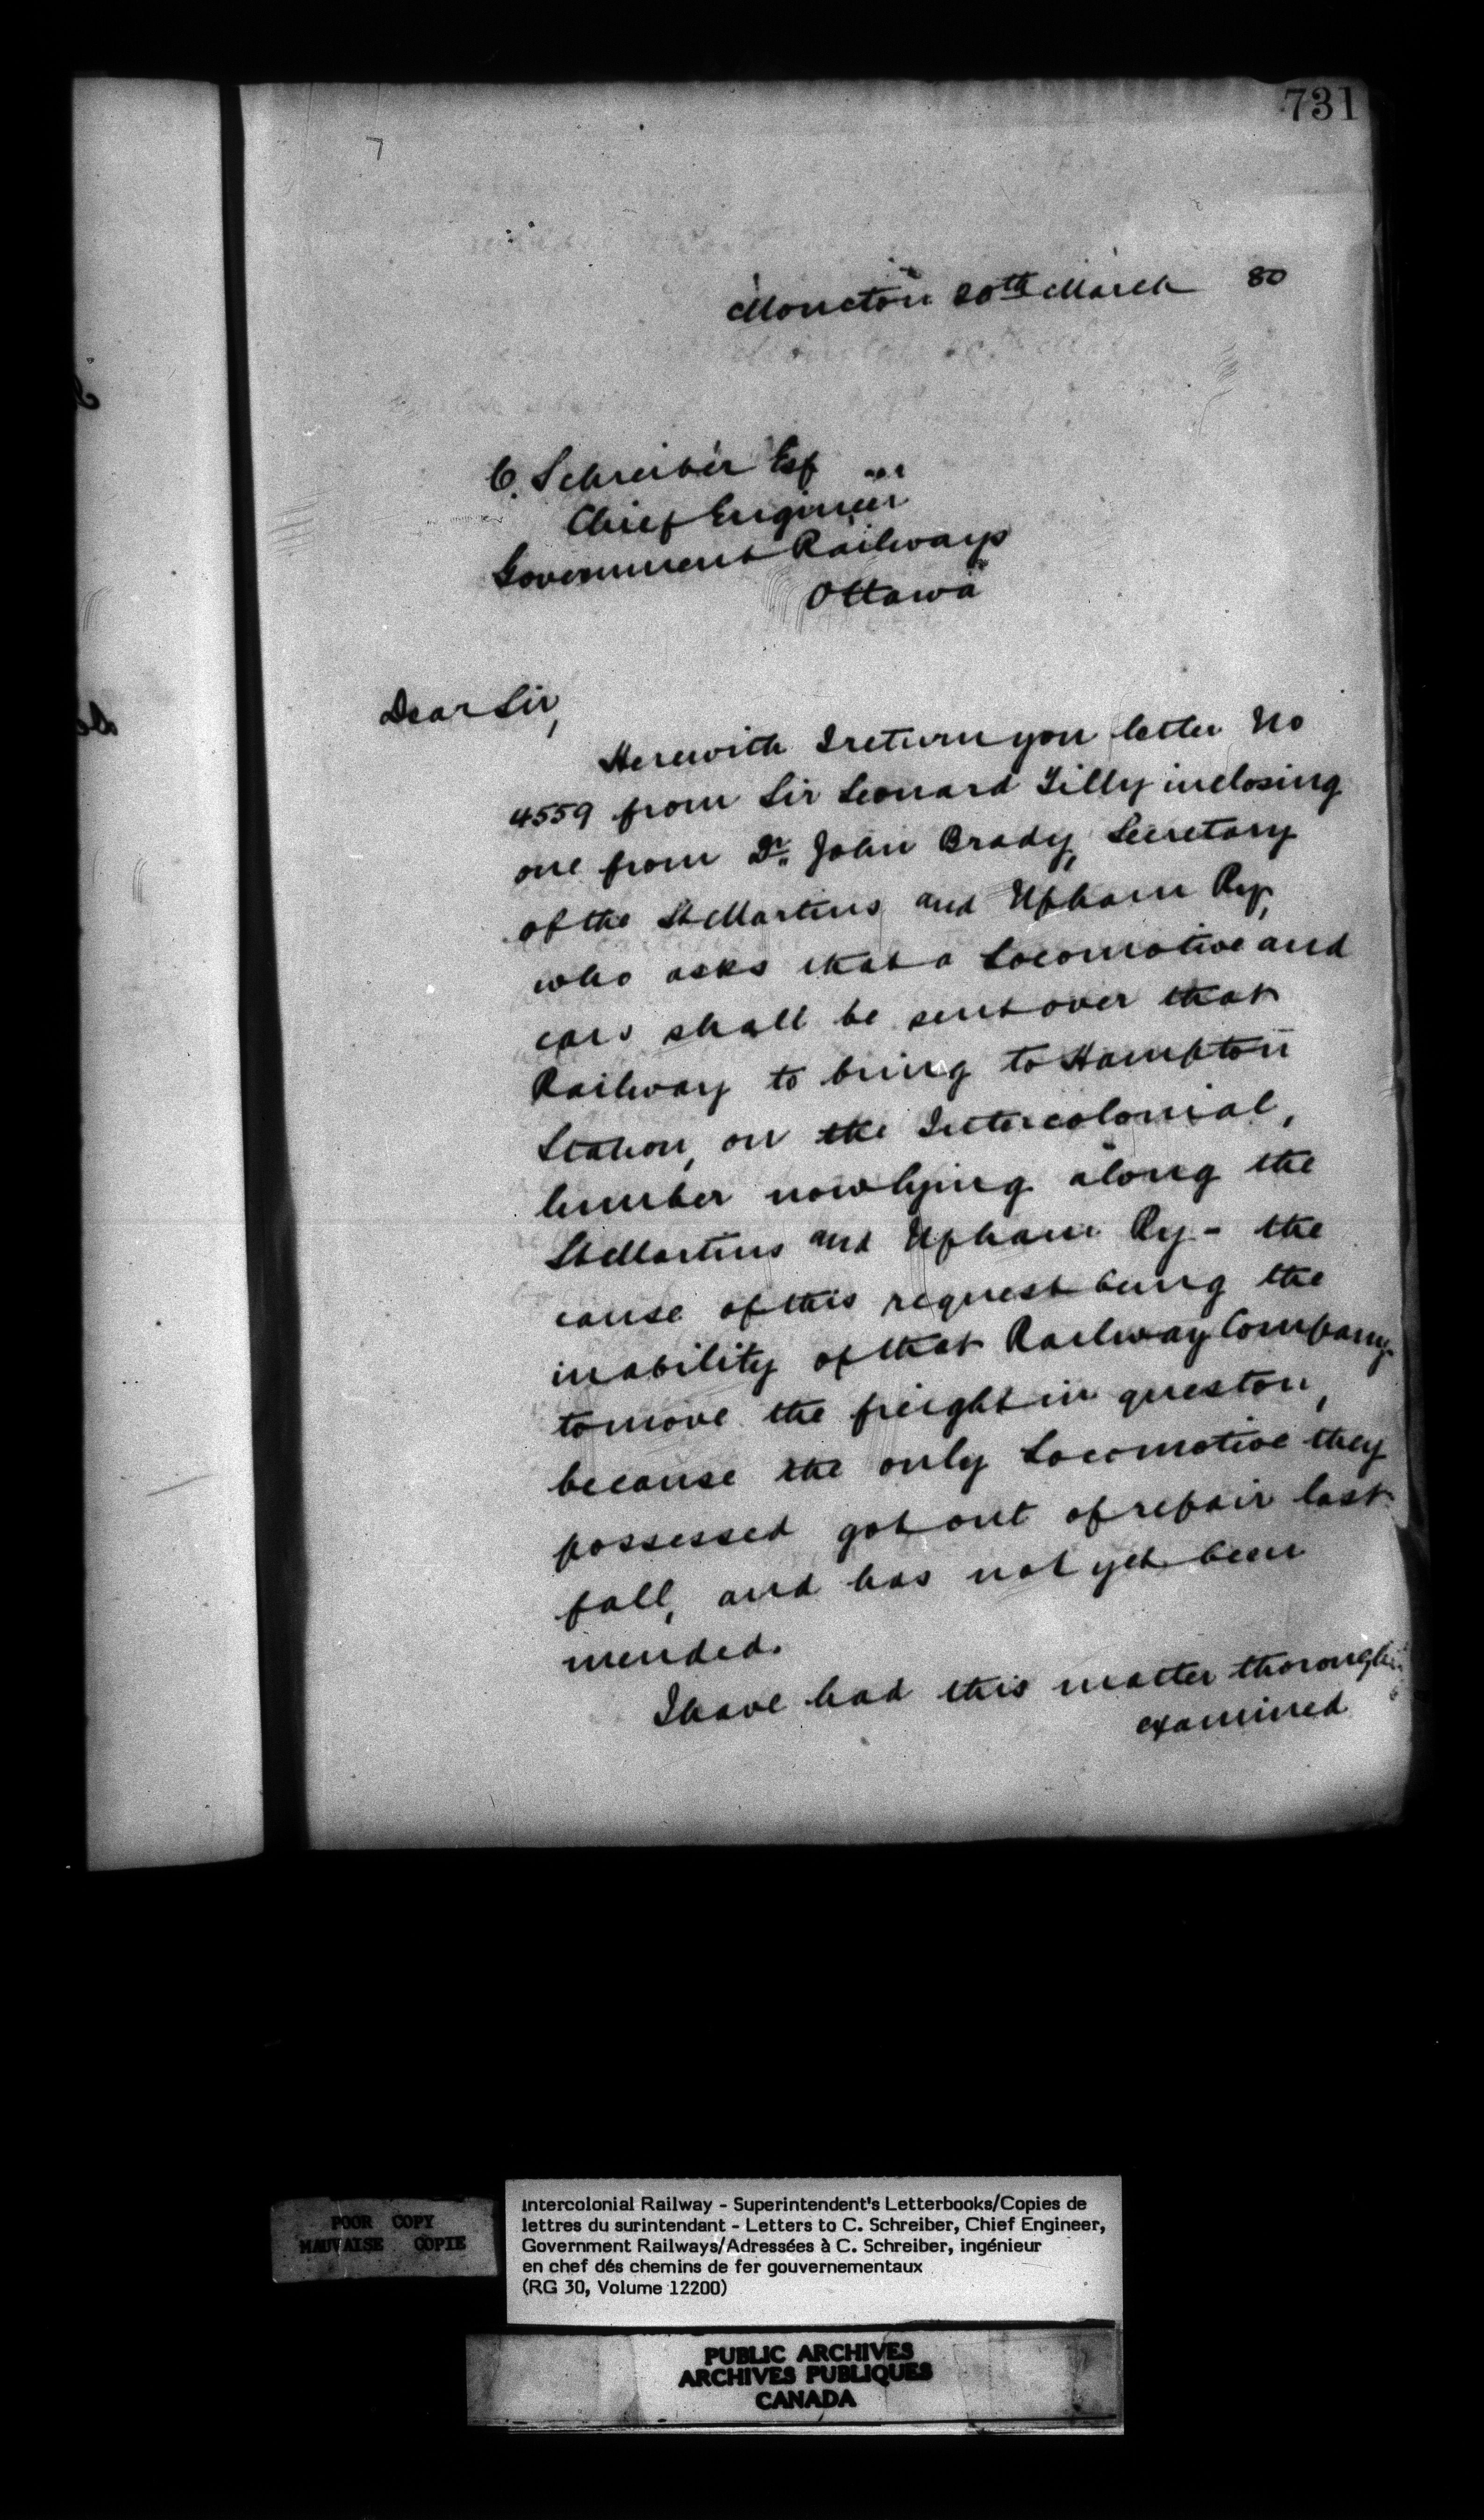 731
Moncton 20th March 80
C. Schreiber Esq
Chief Engineer
Government Railways
Ottawa
Dear Sir,
Herewith I return you letter No
4559 from Sir Leonard Tilly inclosing
one from Dr. John Brady, Secretary
of the St Martins and Upham Ry,
who asks that a Locomotive and
cars shall be sent over that
Railway to bring to Hampton
Station, on the Intercolonial,
lumber now lying along the
St Martins and Upham Ry - the
cause of this request being the
inability of that Railway Company
to move the freight in queston,
because the only Locomotive they
possessed got out of repair last
fall, and has not yet been
mended.
I have had this matter thoroughly
examined
POOR COPY
MAUVAISE COPIE
Intercolonial Railway - Superintendent's Letterbooks/Copies de
lettres du surintendant - Letters to C. Schreiber, Chief Engineer,
Government Railways/Adressées à C. Schreiber, ingénieur
en chef dés chemins de fer gouvernementaux
(RG 30, Volume 12200)
PUBLIC ARCHIVES
ARCHIVES PUBLIQUES
CANADA